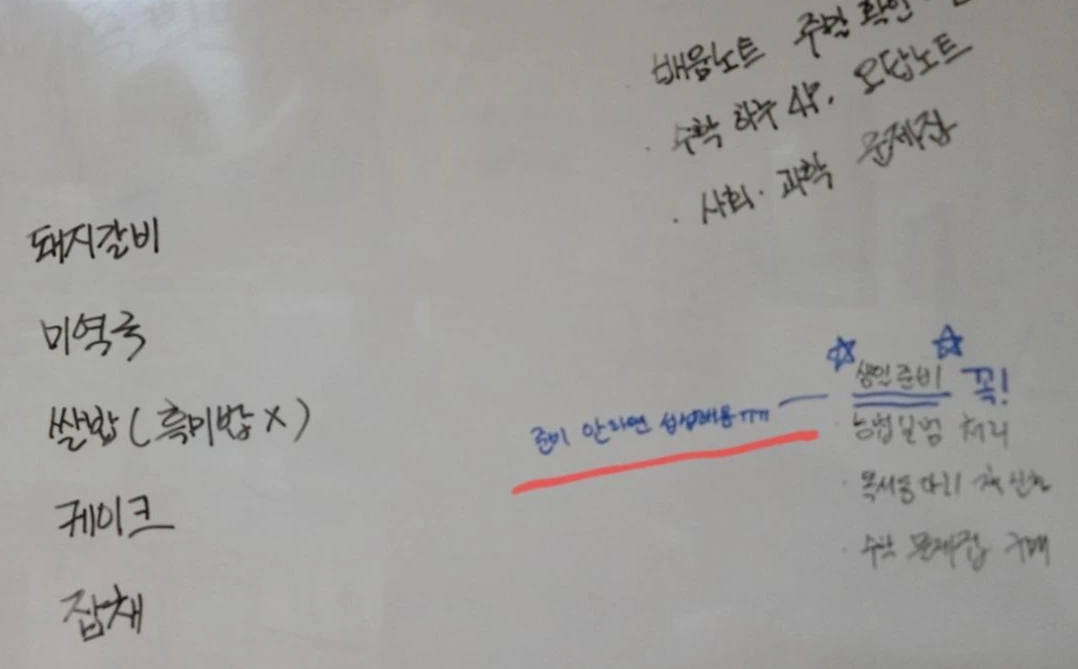 배움노트 주말 확인
· 수학 하루 4장. 오답노트
· 사회·과학 문제집
돼지갈비
미역국
쌀밥(흑미밥 X)
케이크
잡채
생일준비 꼭!
준비 안하면 섭섭해용ㅠㅠ
처리
· 책 신청
· 수학 문제집 구매